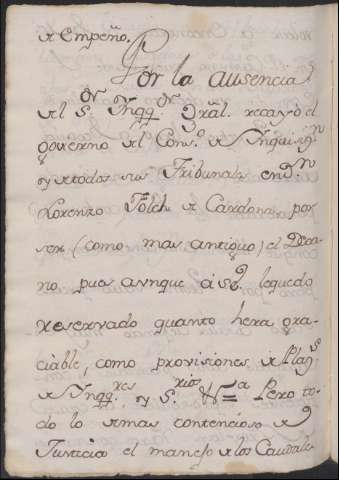 de Empeño.
Por la ausencia
del S.ᵒʳ Ynqq.ᵒʳ Gràl. recayò el
govierno del Cons.º de Ynquisi.ᵒⁿ
y de todos sus Tribunales en D.ⁿ
Lorenzo Folch de Cardona, por
ser (como mas antiguo) el Deca-
no, pues aunque á le quedo
reservado quanto hera gra-
ciàble, como provisiones de Plaz.ˢ
de Ynqq.ʳᵉˢ y S.ʳⁱᵒˢ &.ᵃ Pero to-
do lo demas contencioso de
Justicia el manejo de los Caudale